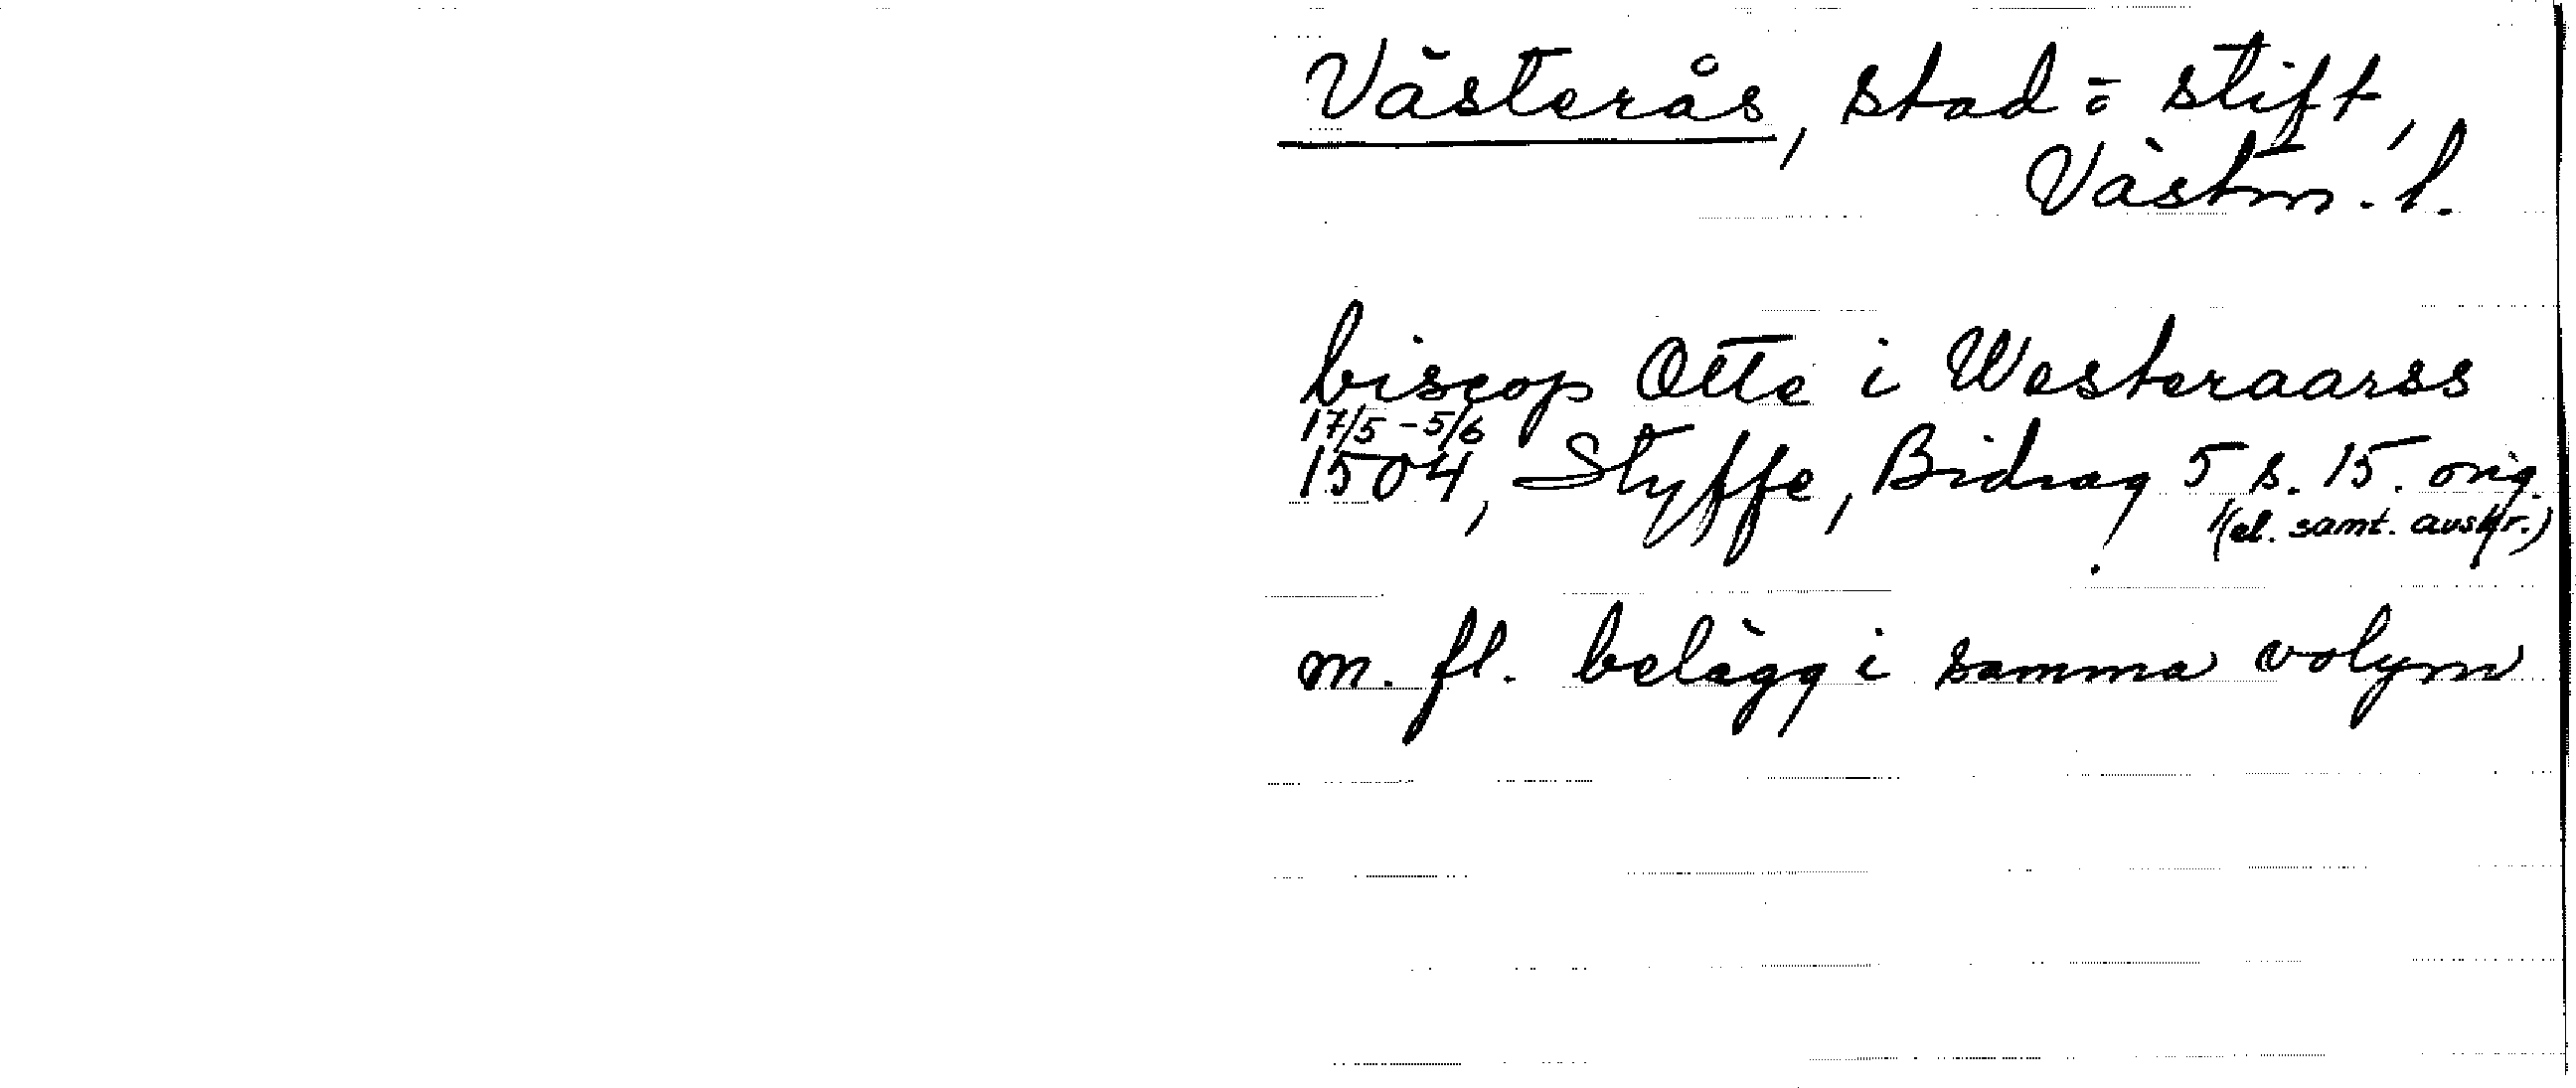 Västerås, stad o stift,
Västm. l.
biscop Otte i Westeraarss
17/5 - 5/6
1504, Styffe, Bidrag 5 s. 15. orig.
(el. samt. avskr.)
m. fl. belägg i samma volym